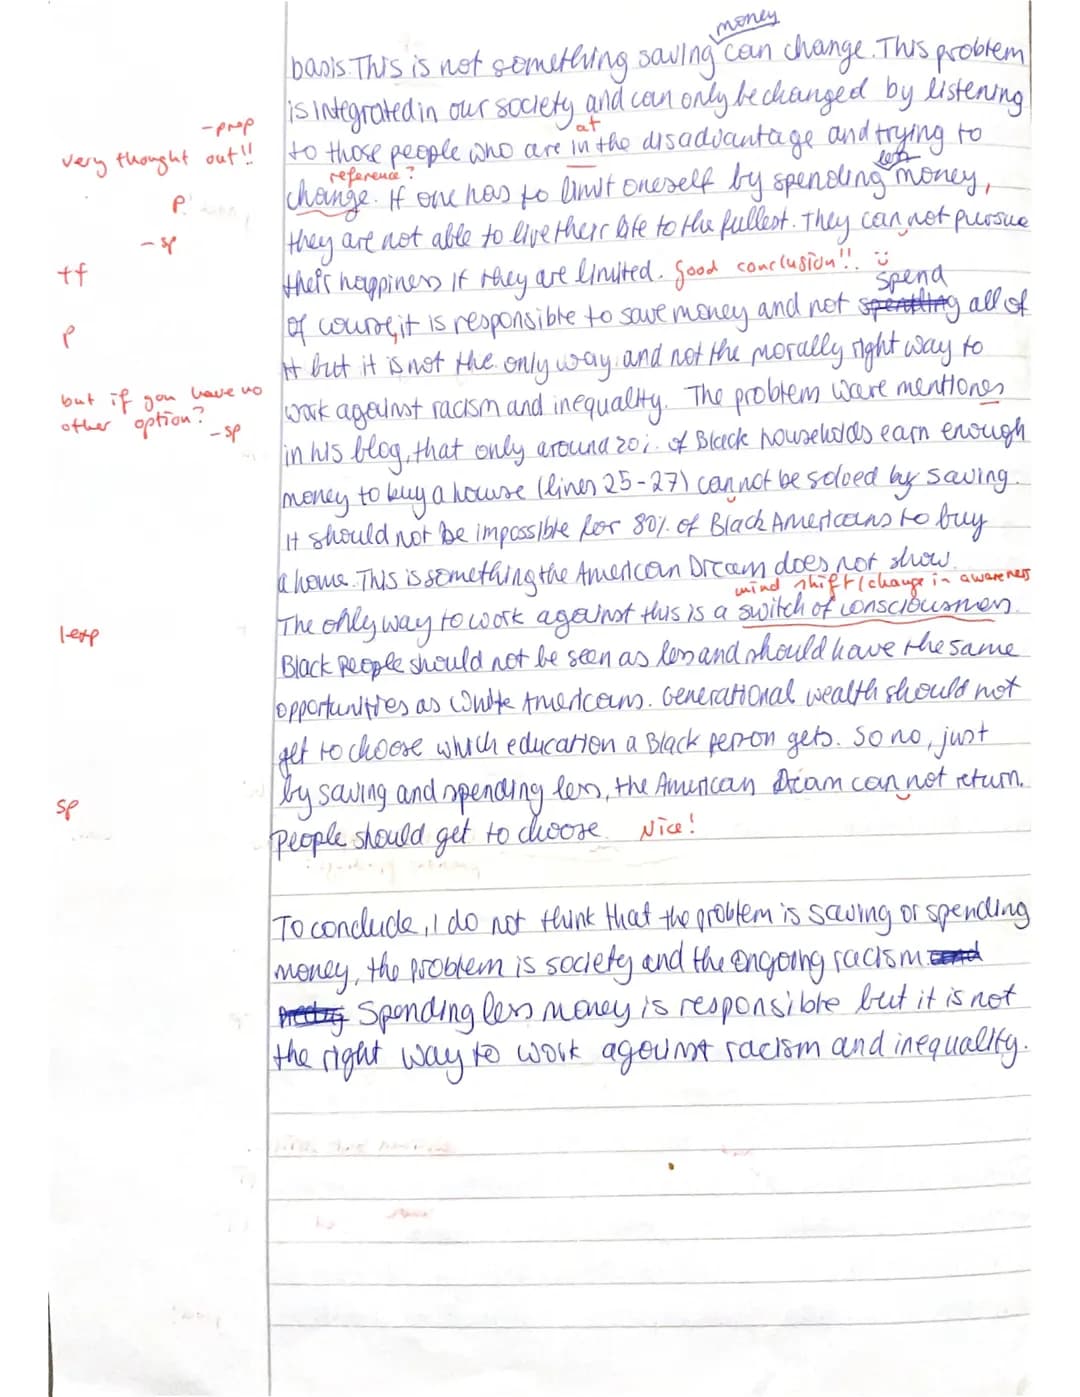 money
basis. This is not something saving can change. This problem
is integrated in our society and can only be changed by listening
-prep
at
very thought out!!
to those people who are in the disadvantage and trying to
reference?
less
P.
change. If one has to limit oneself by spending money,
-sp
they are not able to live their life to the fullest. They can not pursue
tf
their happiness if they are limited. Good conclusion!! :)
spend
P
Of course, it is responsible to save money and not spending all of
it but it is not the only way and not the morally right way to
but if you have no
other option?
work against racism and inequality. The problem Ware mentiones
-sp
in his blog, that only around 20% of Black households earn enough
money to buy a house (lines 25-27) can not be solved by saving.
It should not be impossible for 80% of Black Americans to buy
a home. This is something the American Dream does not show.
mind shift/change in awareness
The only way to work against this is a switch of consciousness.
1-exp
Black People should not be seen as less and should have the same
opportunities as White Americans. Generational wealth should not
get to choose which education a Black person gets. So no, just
by saving and spending less, the American Dream can not return.
sp
People should get to choose. Nice!
To conclude, I do not think that the problem is saving or spending
money, the problem is society and the ongoing racism. and
Spending less money is responsible but it is not
the right way to work against racism and inequality.